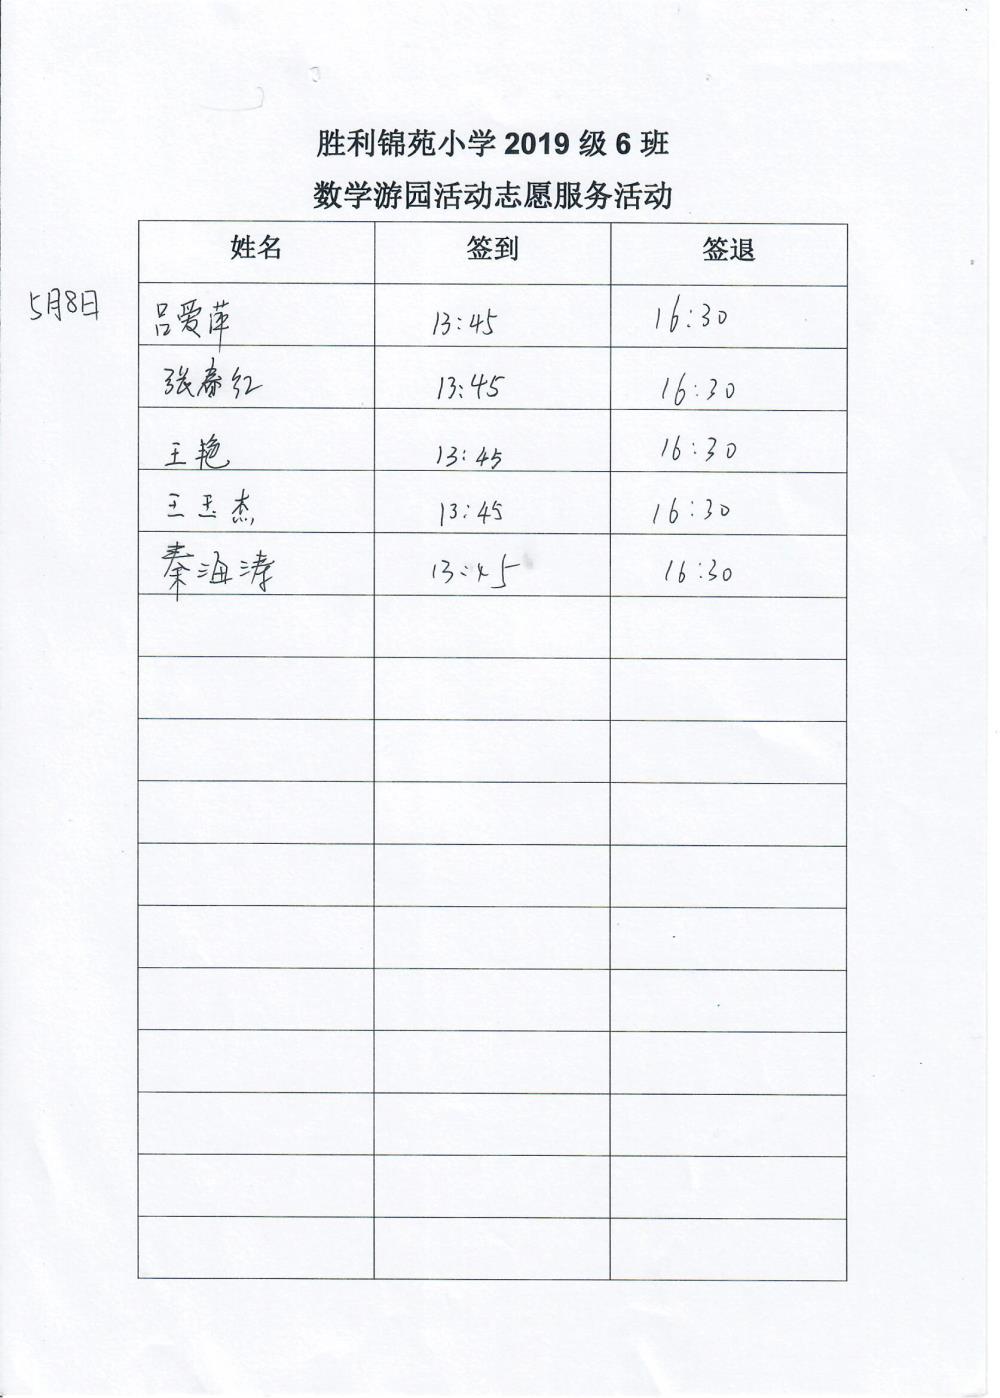 胜利锦苑小学 2019 级 6 班
数学游园活动志愿服务活动
姓名 签到 签退
5月8日 吕爱萍 13:45 16:30
张春红 13:45 16:30
王艳 13:45 16:30
王玉杰 13:45 16:30
秦海涛 13:45 16:30